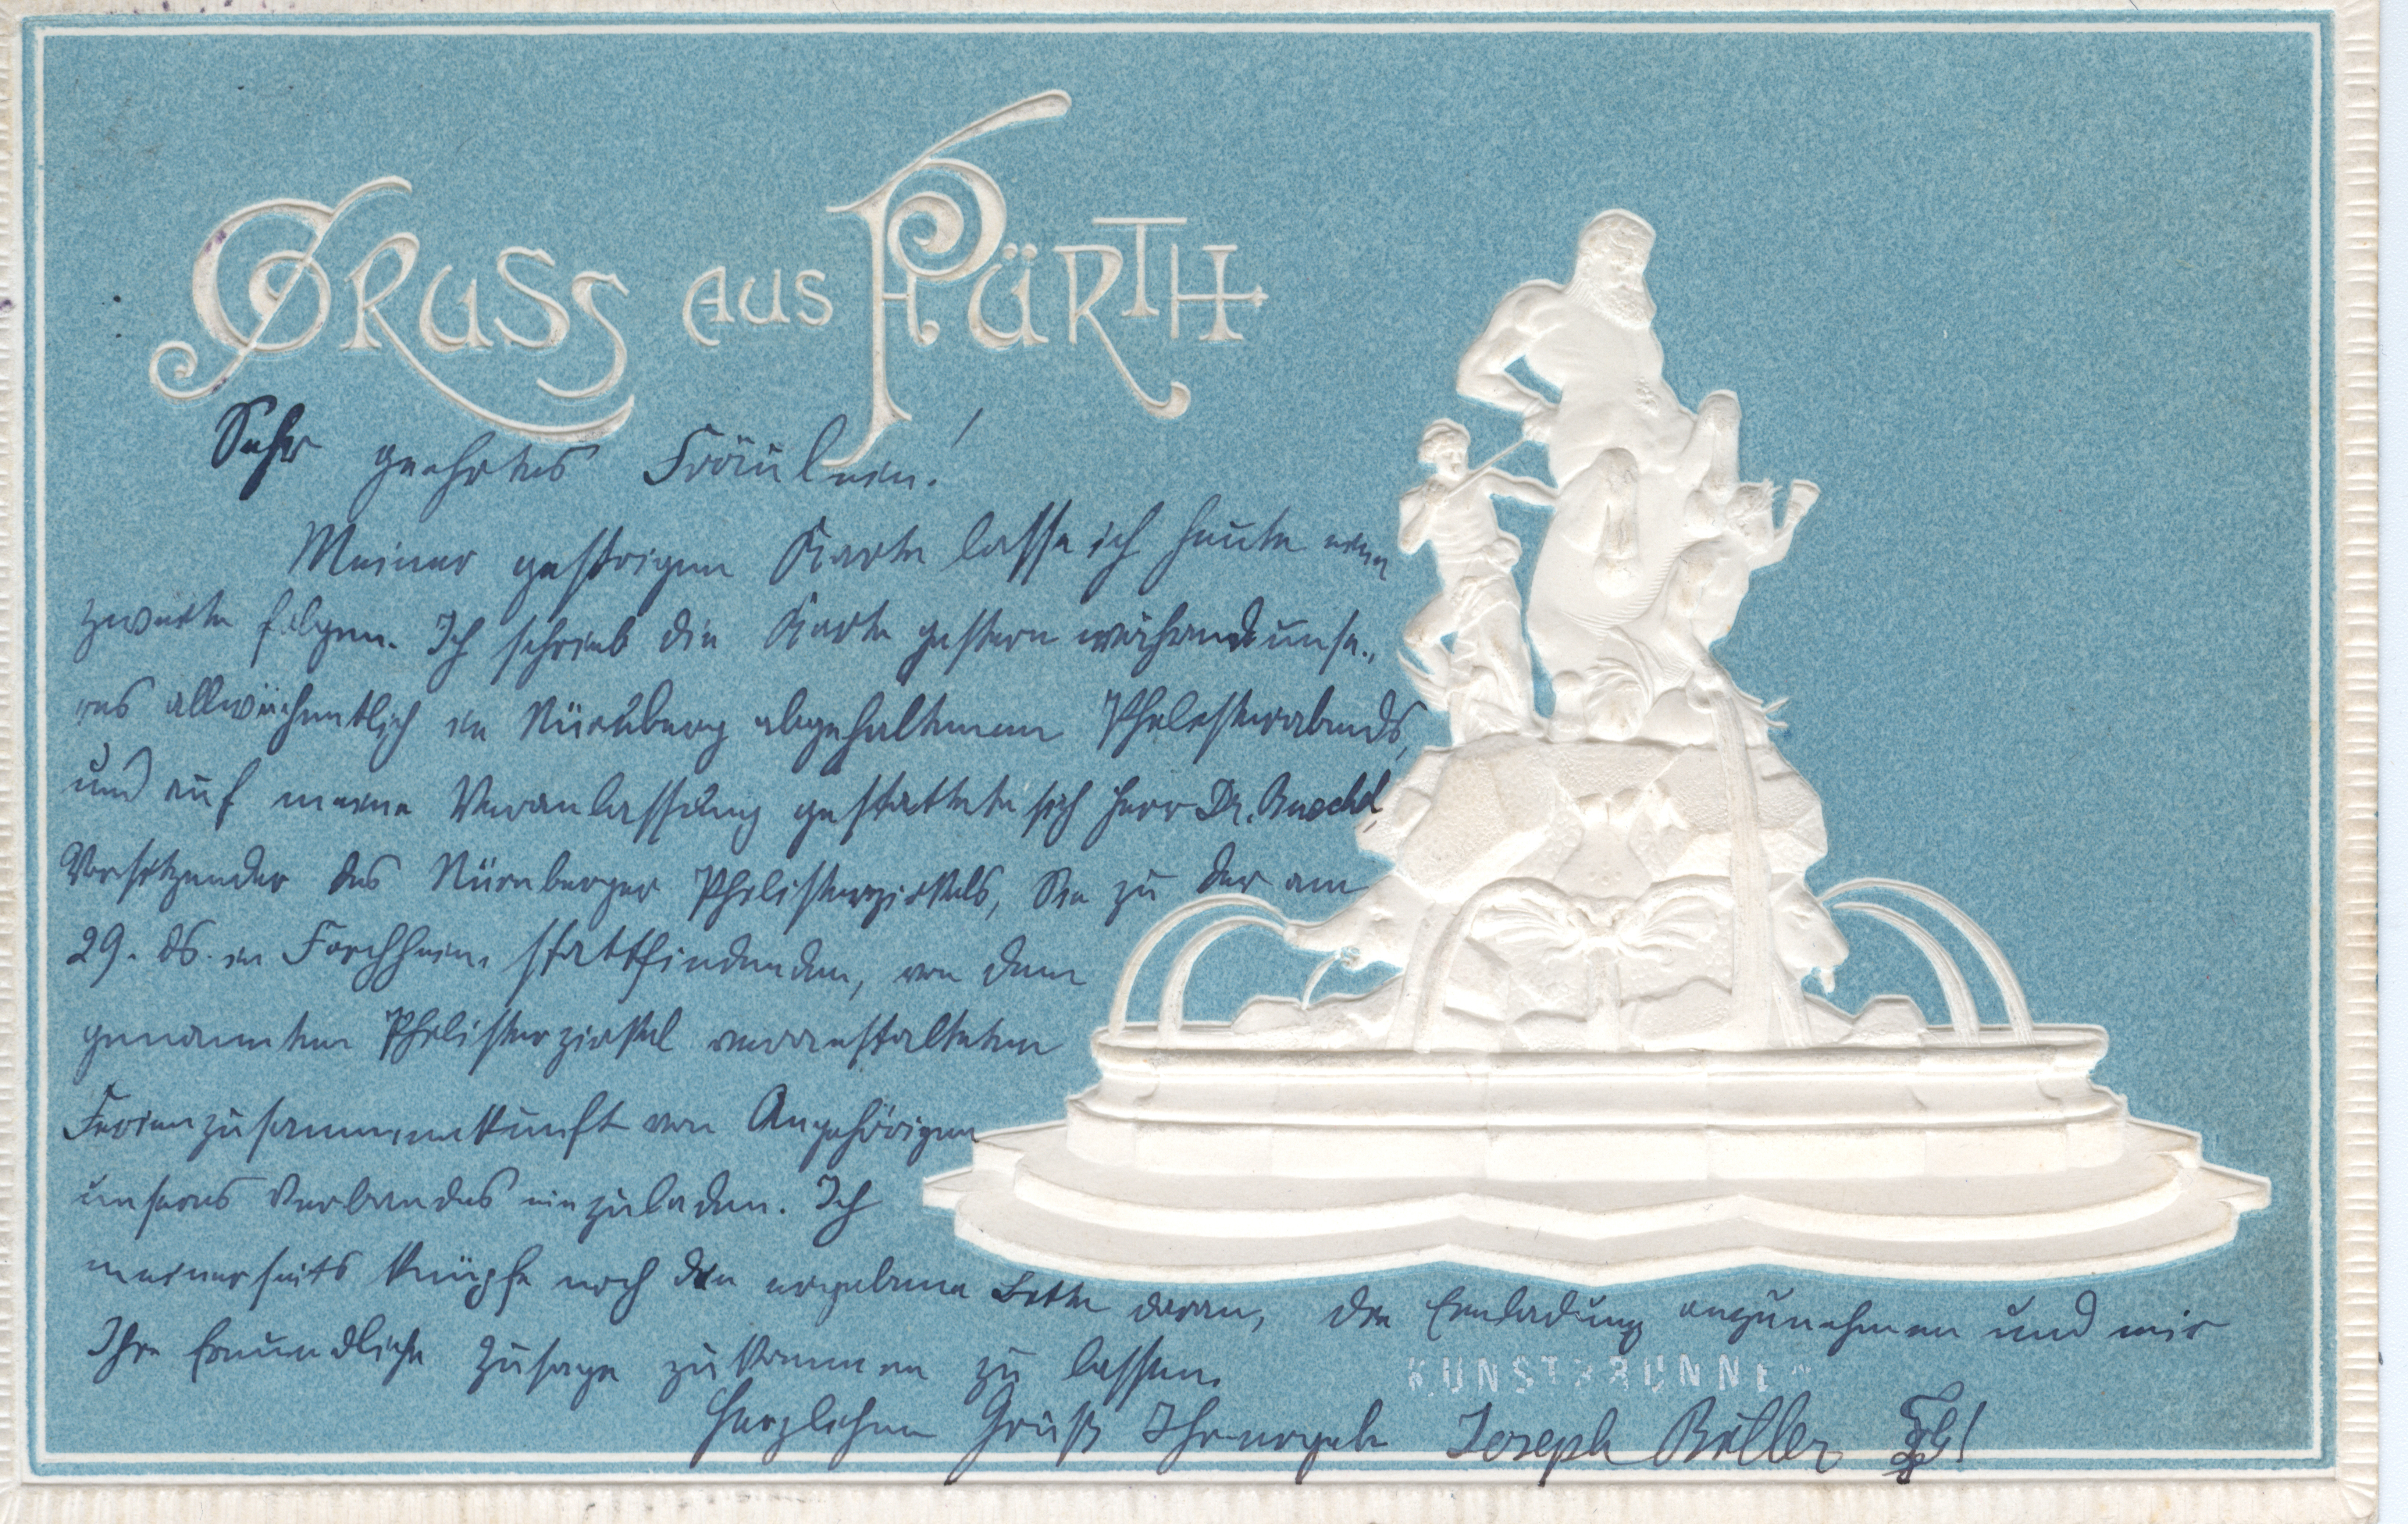 GRUSS AUS FÜRTH
Sehr geehrtes Fräulein!
Meiner gestrigen Karte lasse ich heute eine
zweite folgen. Ich schrieb die Karte gestern während unse-
res allwöchentlich in Nürnberg abgehaltenen Philisterabends,
und auf meine Veranlassung gestattete sich Herr Dr.
Vorsitzender des Nürnberger Philisterzirkels, Sie zu der am
29. ds. in Forchheim stattfindenden, von dem
genannten Philisterzirkel veranstalteten
Ferienzusammenkunft von Angehörigen
unseres Verbandes einzuladen. Ich
meinerseits knüpfe noch die ergebene Bitte daran, die Einladung anzunehmen und mir
Ihre freundliche Zusage zukommen zu lassen.
KUNSTBRUNNEN
Herzlichen Gruß Ihr ergeb. Joseph Böller